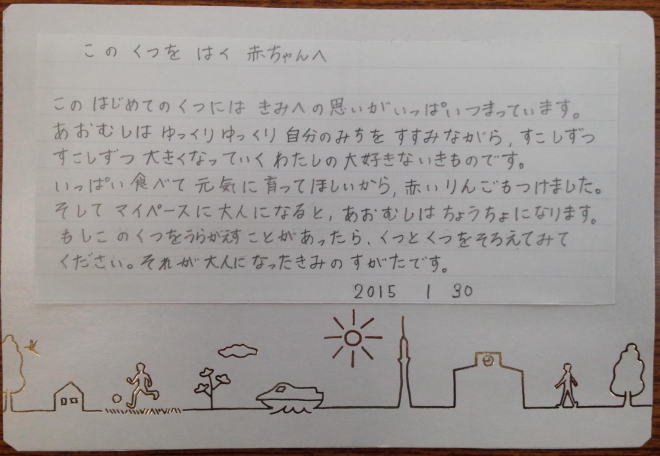 このくつを はく 赤ちゃんへ
この はじめてのくつには きみへの思いがいっぱいつまっています。
あおむしは ゆっくりゆっくり 自分のみちを すすみながら, すこしずつ
すこしずつ 大きくなっていく わたしの大好きないきものです。
いっぱい食べて 元気に育ってほしいから, 赤いりんごもつけました。
そして マイペースに大人になると, あおむしはちょうちょになります。
もしこのくつをうらがえすことがあったら、くつとくつをそろえてみて
ください。それが大人になったきみのすがたです。
2015 1 30